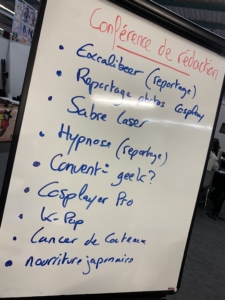 Conférence de rédaction
• Excalibeer (reportage)
• Reportage photos Cosplay
• Sabre laser
• Hypnose (reportage)
• Convent° geek?
• Cosplayer Pro
• K-Pop
• Lancer de Couteaux
• nourriture japonaise